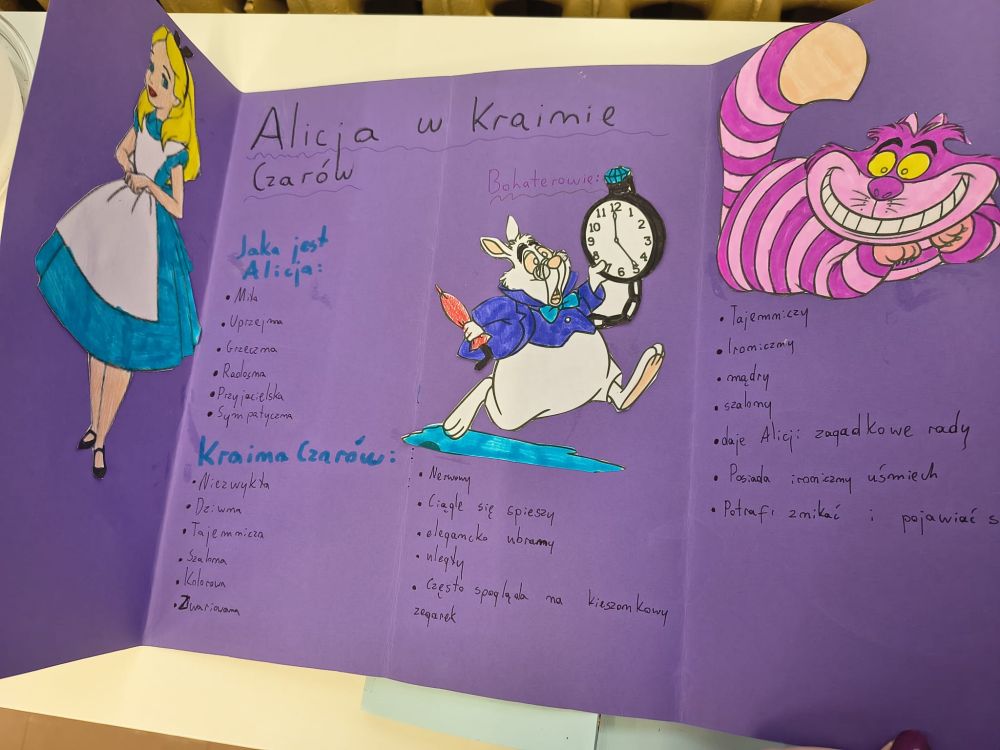 Alicja w Krainie
Czarów
Jaka jest
Alicja:
• Miła
• Uprzejma
• Grzeczna
• Radosna
• Przyjacielska
• Sympatyczna
Kraina Czarów:
• Niezwykła
• Dziwna
• Tajemnicza
• Szalona
• Kolorowa
• Zwariowana
Bohaterowie:
12
1
2
3
4
5
6
8
9
10
11
• Nerwowy
• Ciągle się spieszy
• elegancko ubrany
• uległy
• Często spogląda na kieszonkowy
zegarek
• Tajemniczy
• Ironiczny
• mądry
• szalony
• daje Alicji zagadkowe rady
• Posiada ironiczny uśmiech
• Potrafi znikać i pojawiać s